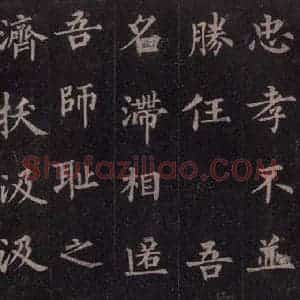 忠孝不並
勝任吾
名滯相匿
吾師耻之
濟扶汲汲
Shufaziliao.COM